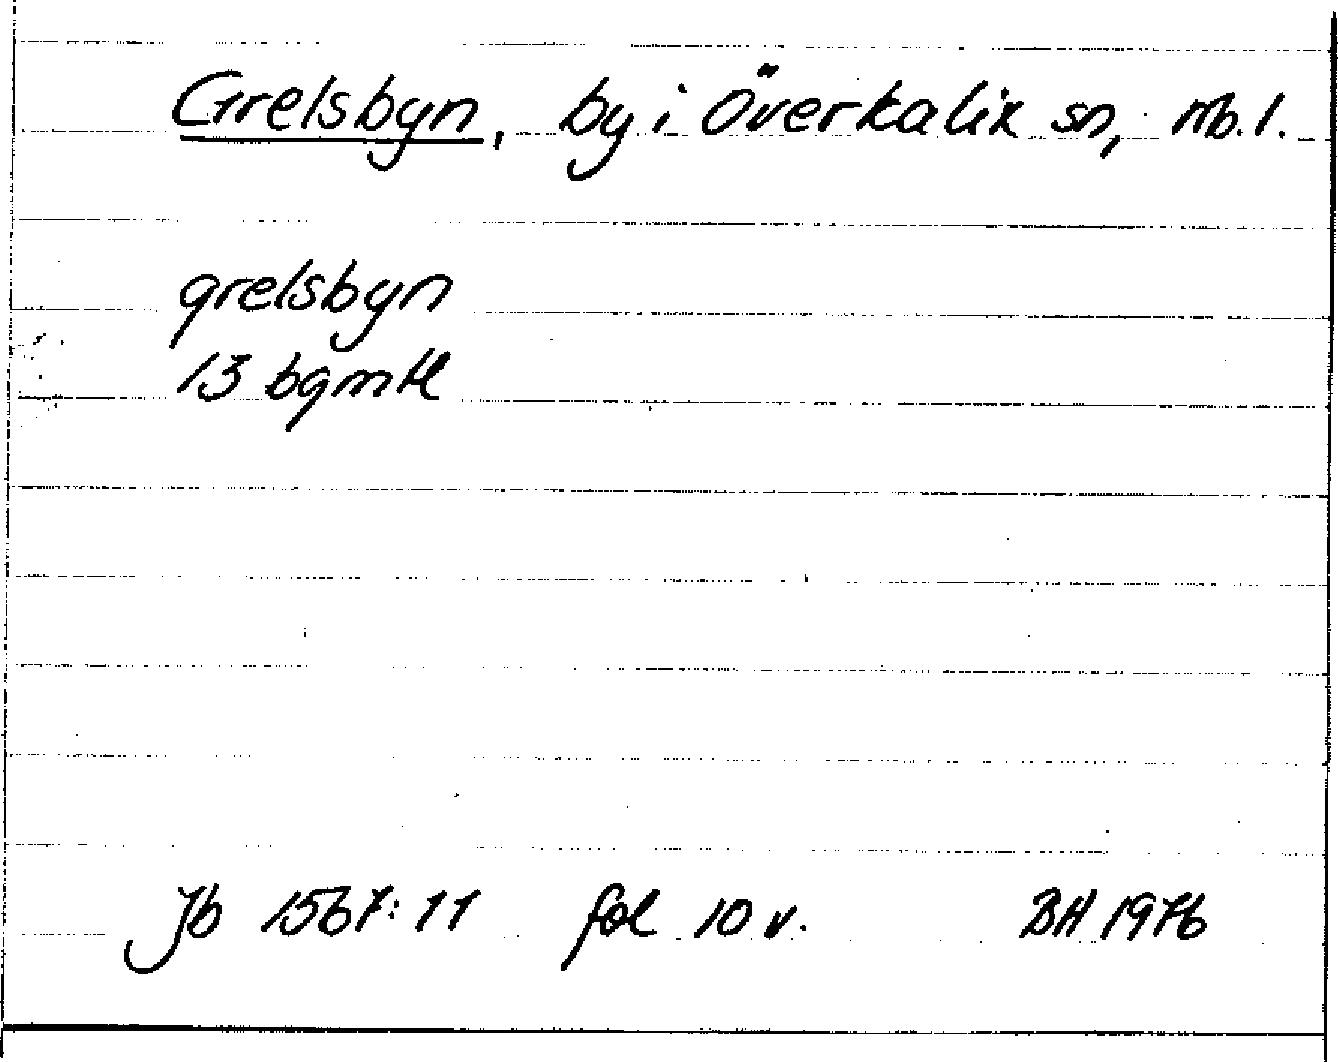 Grelsbyn, by i Överkalix sn, Nb. l.
grelsbyn
13 bgmtl
Jb 1567:11 fol 10 v. BH 1976